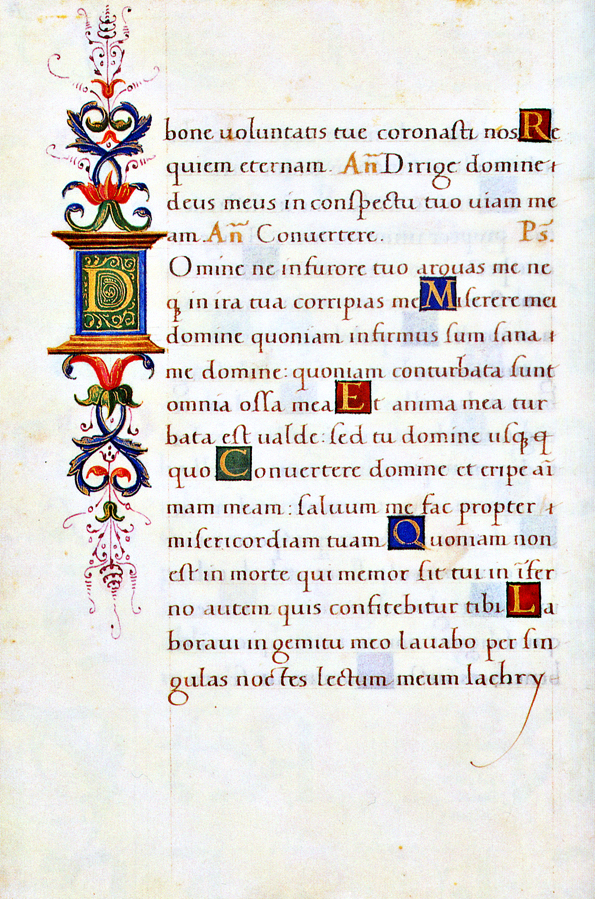 bone uoluntatis tue coronasti nos Re
quiem eternam. Añ Dirige domine
deus meus in conspectu tuo uiam me
am. Añ Conuertere. Ps̄.
Domine ne in furore tuo arguas me ne
q̨ in ira tua corripias me Miserere mei
domine quoniam infirmus sum sana
me domine: quoniam conturbata sunt
omnia ossa mea Et anima mea tur
bata est ualde: sed tu domine usq̨
quo Conuertere domine et eripe aī
mam meam: saluum me fac propter
misericordiam tuam Quoniam non
est in morte qui memor sit tui in īfer
no autem quis confitebitur tibi La
boraui in gemitu meo lauabo per sin
gulas noctes lectum meum lachry